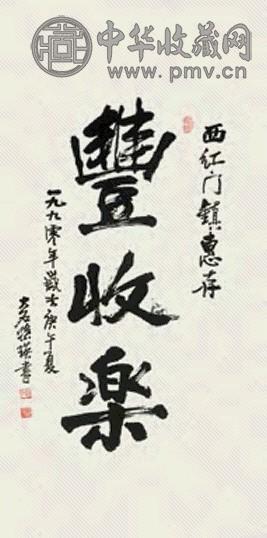 中华收藏网
www.pmv.cn
西红门镇惠存
豐收楽
一九九零年歲在庚午夏
書